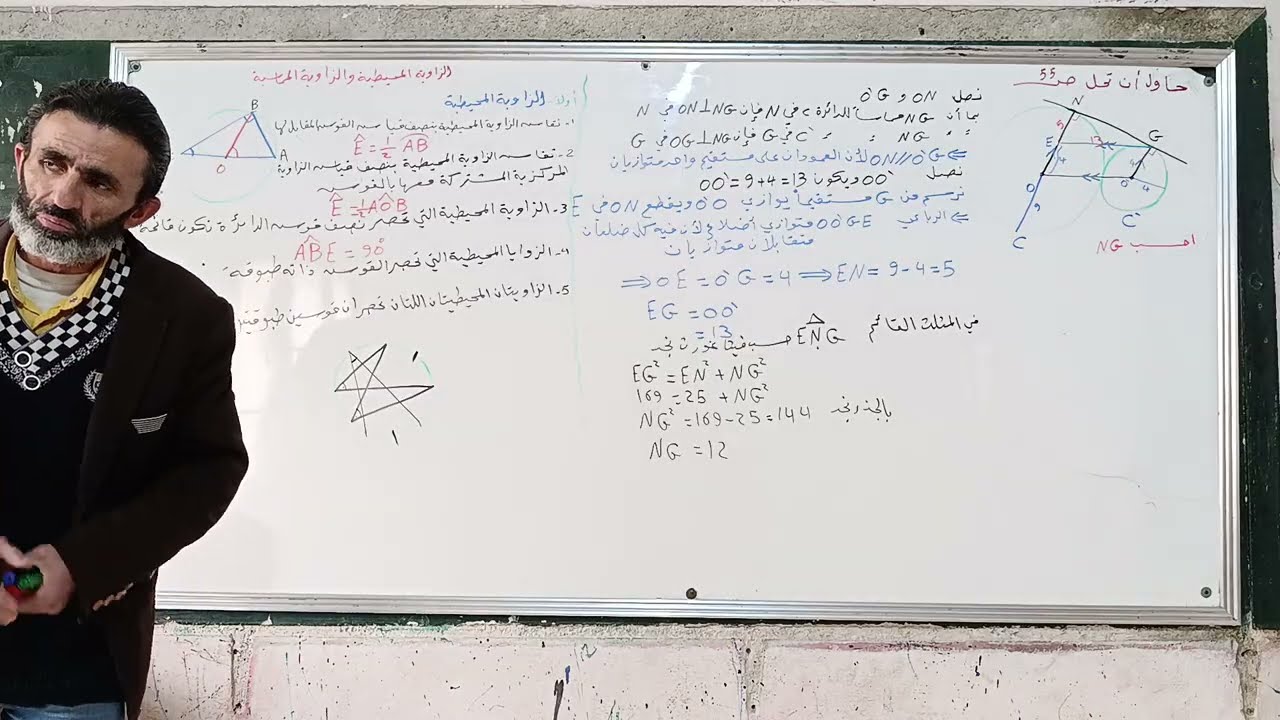 حاول أن تحل ص 55
نصل ON و O'G
بما أن NG مماساً للدائرة C في N فإن ON⊥NG في N
〃 〃 NG 〃 〃 C' في G فإن O'G⊥NG في G
⇐ ON//O'G لأن العمودان على مستقيم واحد متوازيان
نصل OO' ويكون OO'=9+4=13
نرسم من G مستقيماً يوازي OO' ويقطع ON في E
⇐ الرباعي OO'GE متوازي أضلاع لأن فيه كل ضلعان
متقابلان متوازيان
⟹ OE = O'G = 4 ⟹ EN = 9-4=5
EG = OO'
= 13
في المثلث القائم ENG حسب فيثاغورث نجد
EG² = EN² + NG²
169 = 25 + NG²
NG² = 169-25=144 بالجذر نجد
NG = 12
N
5
E
G
13
4
4
O
O'
4
9
C'
C
احسب NG
الزاوية المحيطية والزاوية المماسية
أولاً- الزاوية المحيطية
1- تقاس الزاوية المحيطية بنصف قياس القوس المقابل لها
Ê = 1/2 AB
2- تقاس الزاوية المحيطية بنصف قياس الزاوية
المركزية المشتركة معها بالقوس
Ê = 1/2 AÔB
3- الزاوية المحيطية التي تحصر نصف قوس الدائرة تكون قائمة
ABE = 90°
4- الزوايا المحيطية التي تحصر القوس ذاته طبوقة
5- الزاويتان المحيطيتان اللتان تحصران قوسين طبوقين
B
A
O